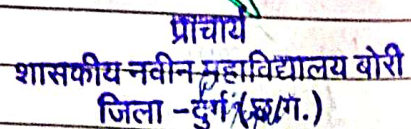 प्राचार्य
शासकीय नवीन महाविद्यालय बोरी
जिला -दुर्ग (छ/ग.)